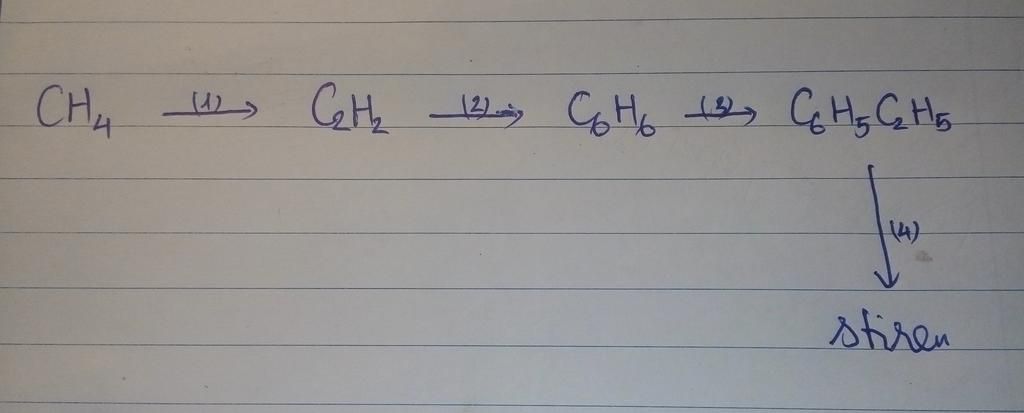 CH₄ —(1)→ C₂H₂ —(2)→ C₆H₆ —(3)→ C₆H₅C₂H₅
(4)
stiren